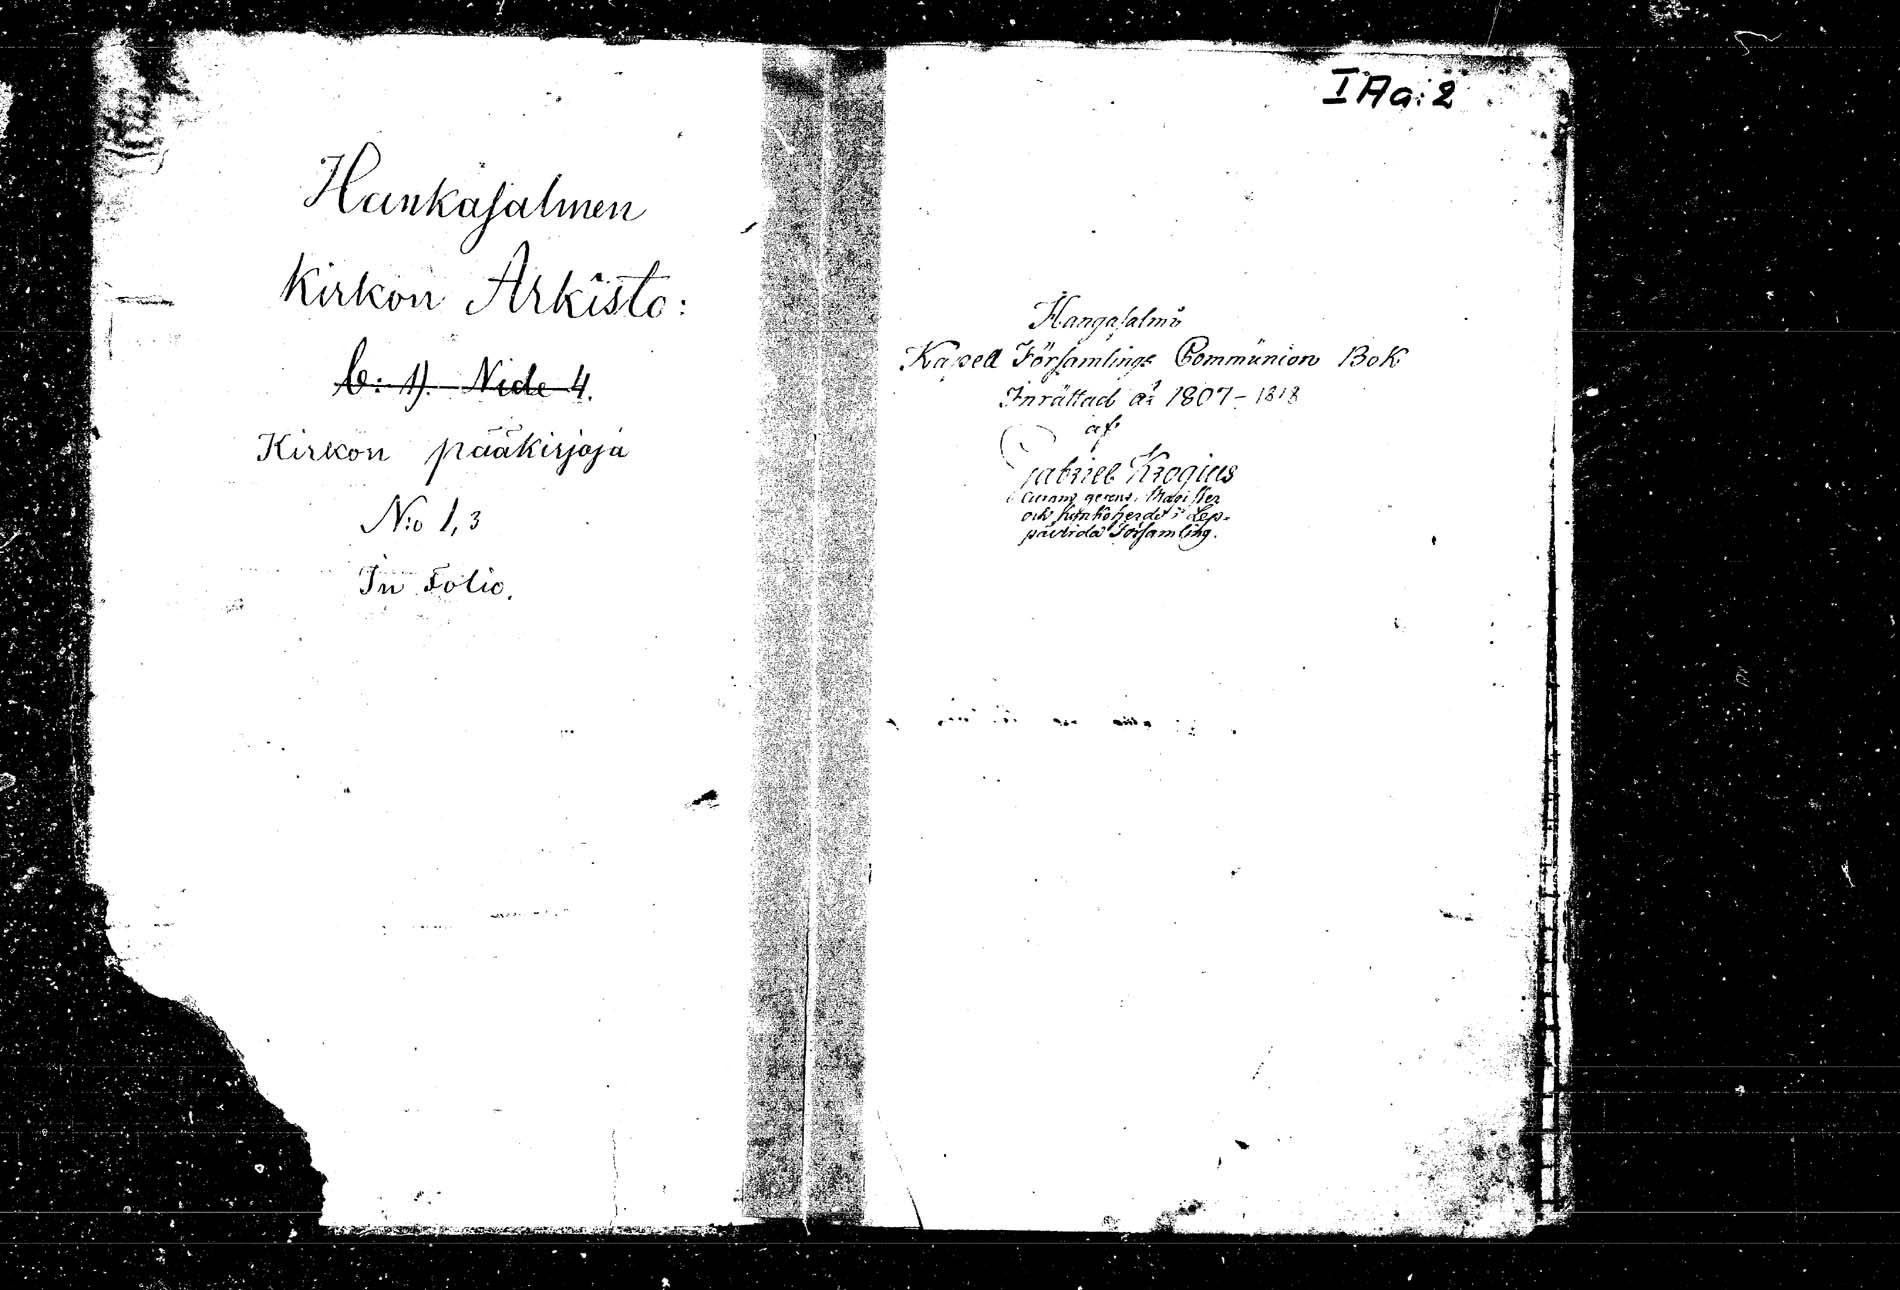 Hankasalmen
Kirkon Arkisto:
b: 1). Nide 4.
Kirkon pääkirjoja
N:o 1, 3
In Folio.
I Aa: 2
Hangasalmi
Kapell Församlings Communion Bok
Inrättad år 1807 - 1818
af
Gabriel Krogius
gerens, Magister
och Kyrkoherde i Lep-
pävirda Församling.